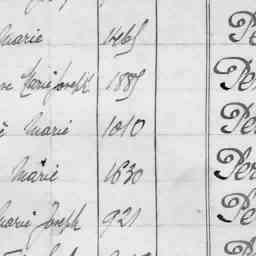 Marie 1465 Pe
Marie Joseph 1885 Pe
Marie 1010 Pe
Marie 1630 Per
Marie Joseph 921 Pe
Pe